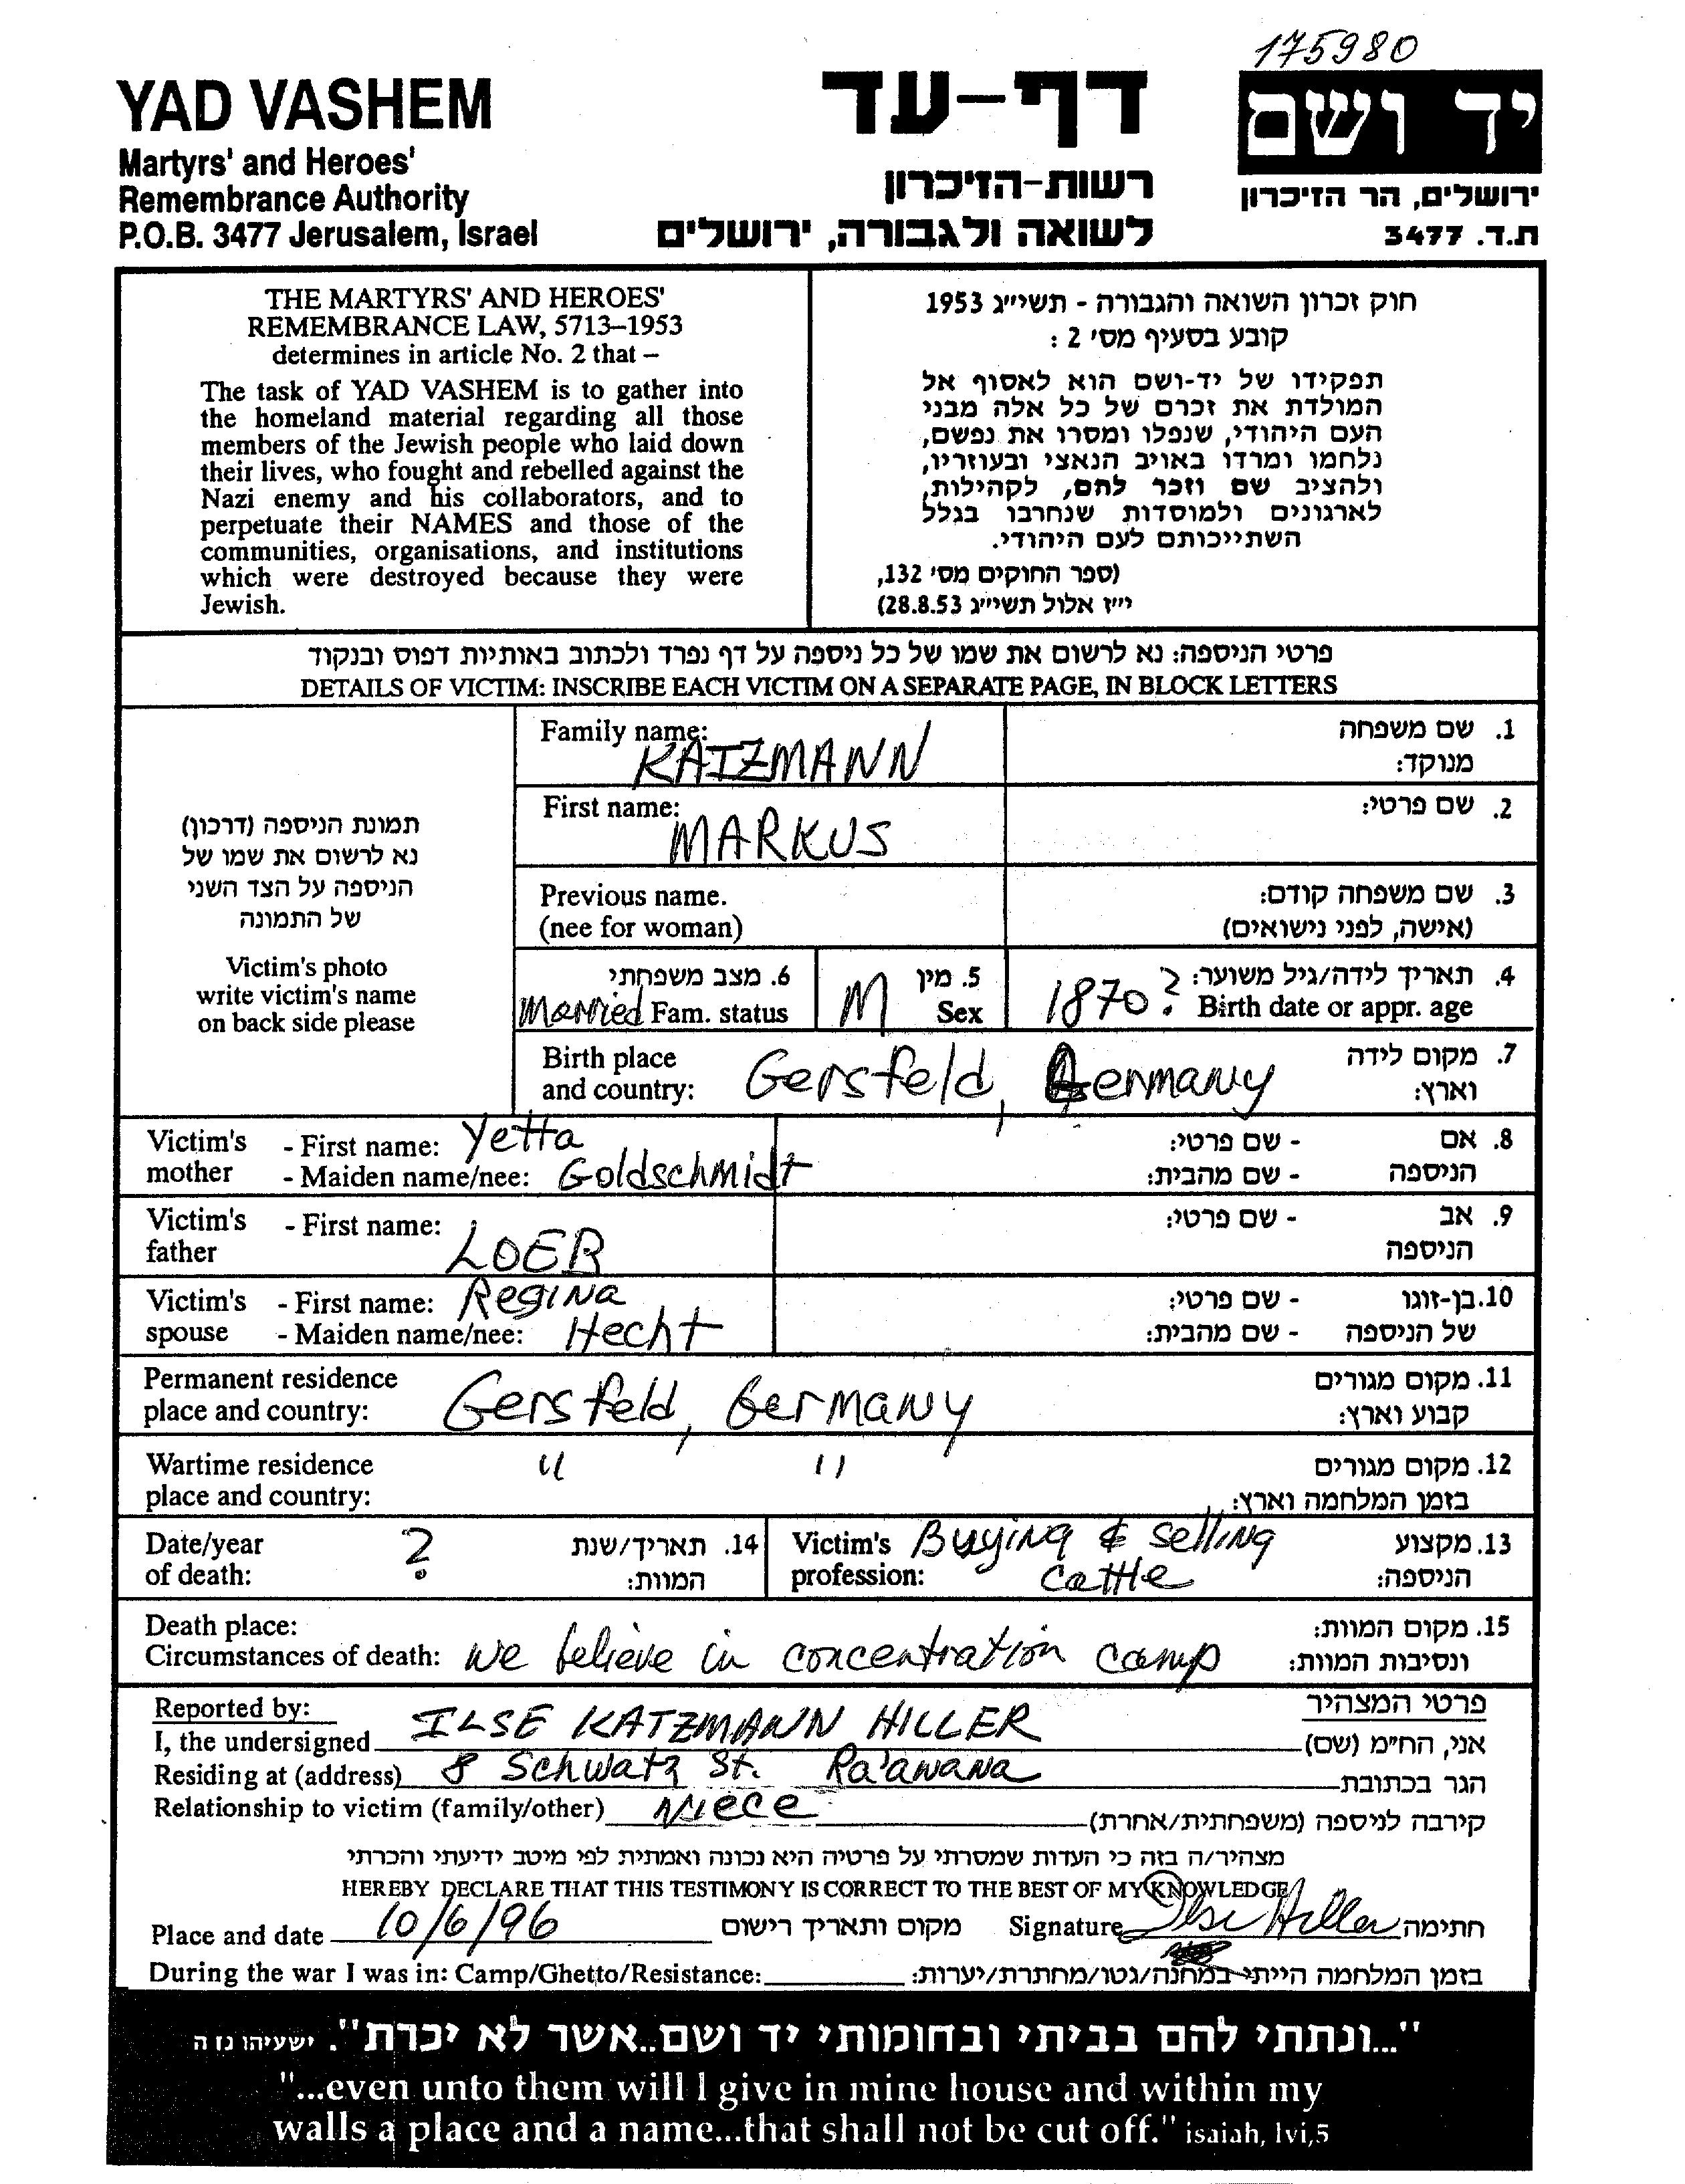 175980
YAD VASHEM
Martyrs' and Heroes'
Remembrance Authority
P.O.B. 3477 Jerusalem, Israel
דף-עד
רשות-הזיכרון
לשואה ולגבורה, ירושלים
יד ושם
ירושלים, הר הזיכרון
ת.ד. 3477
THE MARTYRS' AND HEROES'
REMEMBRANCE LAW, 5713–1953
determines in article No. 2 that –
The task of YAD VASHEM is to gather into
the homeland material regarding all those
members of the Jewish people who laid down
their lives, who fought and rebelled against the
Nazi enemy and his collaborators, and to
perpetuate their NAMES and those of the
communities, organisations, and institutions
which were destroyed because they were
Jewish.
חוק זכרון השואה והגבורה - תשי״ג 1953
קובע בסעיף מס׳ 2 :
תפקידו של יד-ושם הוא לאסוף אל
המולדת את זכרם של כל אלה מבני
העם היהודי, שנפלו ומסרו את נפשם,
נלחמו ומרדו באויב הנאצי ובעוזריו,
ולהציב שם וזכר להם, לקהילות,
לארגונים ולמוסדות שנחרבו בגלל
השתייכותם לעם היהודי.
(ספר החוקים מס׳ 132,
י״ז אלול תשי״ג 28.8.53)
פרטי הניספה: נא לרשום את שמו של כל ניספה על דף נפרד ולכתוב באותיות דפוס ובנקוד
DETAILS OF VICTIM: INSCRIBE EACH VICTIM ON A SEPARATE PAGE, IN BLOCK LETTERS
תמונת הניספה (דרכון)
נא לרשום את שמו של
הניספה על הצד השני
של התמונה
Victim's photo
write victim's name
on back side please
Family name: KATZMANN 1. שם משפחה
מנוקד:
First name: MARKUS 2. שם פרטי:
Previous name. 3. שם משפחה קודם:
(nee for woman) (אישה, לפני נישואים)
6. מצב משפחתי 5. מין 4. תאריך לידה/גיל משוער:
Married Fam. status M Sex 1870? Birth date or appr. age
Birth place 7. מקום לידה
and country: Gersfeld, Germany וארץ:
Victim's - First name: Yetta - שם פרטי: 8. אם
mother - Maiden name/nee: Goldschmidt - שם מהבית: הניספה
Victim's - First name: LOEB - שם פרטי: 9. אב
father הניספה
Victim's - First name: Regina - שם פרטי: 10. בן-זוגו
spouse - Maiden name/nee: Hecht - שם מהבית: של הניספה
Permanent residence 11. מקום מגורים
place and country: Gersfeld, Germany קבוע וארץ:
Wartime residence " " 12. מקום מגורים
place and country: בזמן המלחמה וארץ:
Date/year ? 14. תאריך/שנת Victim's Buying & selling 13. מקצוע
of death: המוות: profession: cattle הניספה:
Death place: 15. מקום המוות:
Circumstances of death: we believe in concentration camp ונסיבות המוות:
Reported by: פרטי המצהיר
I, the undersigned ILSE KATZMANN HILLER אני, הח״מ (שם)
Residing at (address) 8 Schwatz St. Ra'anana הגר בכתובת
Relationship to victim (family/other) Niece קירבה לניספה (משפחתית/אחרת)
מצהיר/ה בזה כי העדות שמסרתי על פרטיה היא נכונה ואמתית לפי מיטב ידיעתי והכרתי
HEREBY DECLARE THAT THIS TESTIMONY IS CORRECT TO THE BEST OF MY KNOWLEDGE
Place and date 10/6/96 מקום ותאריך רישום Signature Ilse Hiller חתימה
During the war I was in: Camp/Ghetto/Resistance: בזמן המלחמה הייתי במחנה/גטו/מחתרת/יערות:
"...ונתתי להם בביתי ובחומותי יד ושם..אשר לא יכרת". ישעיהו נו ה
"...even unto them will I give in mine house and within my
walls a place and a name...that shall not be cut off." isaiah, lvi,5